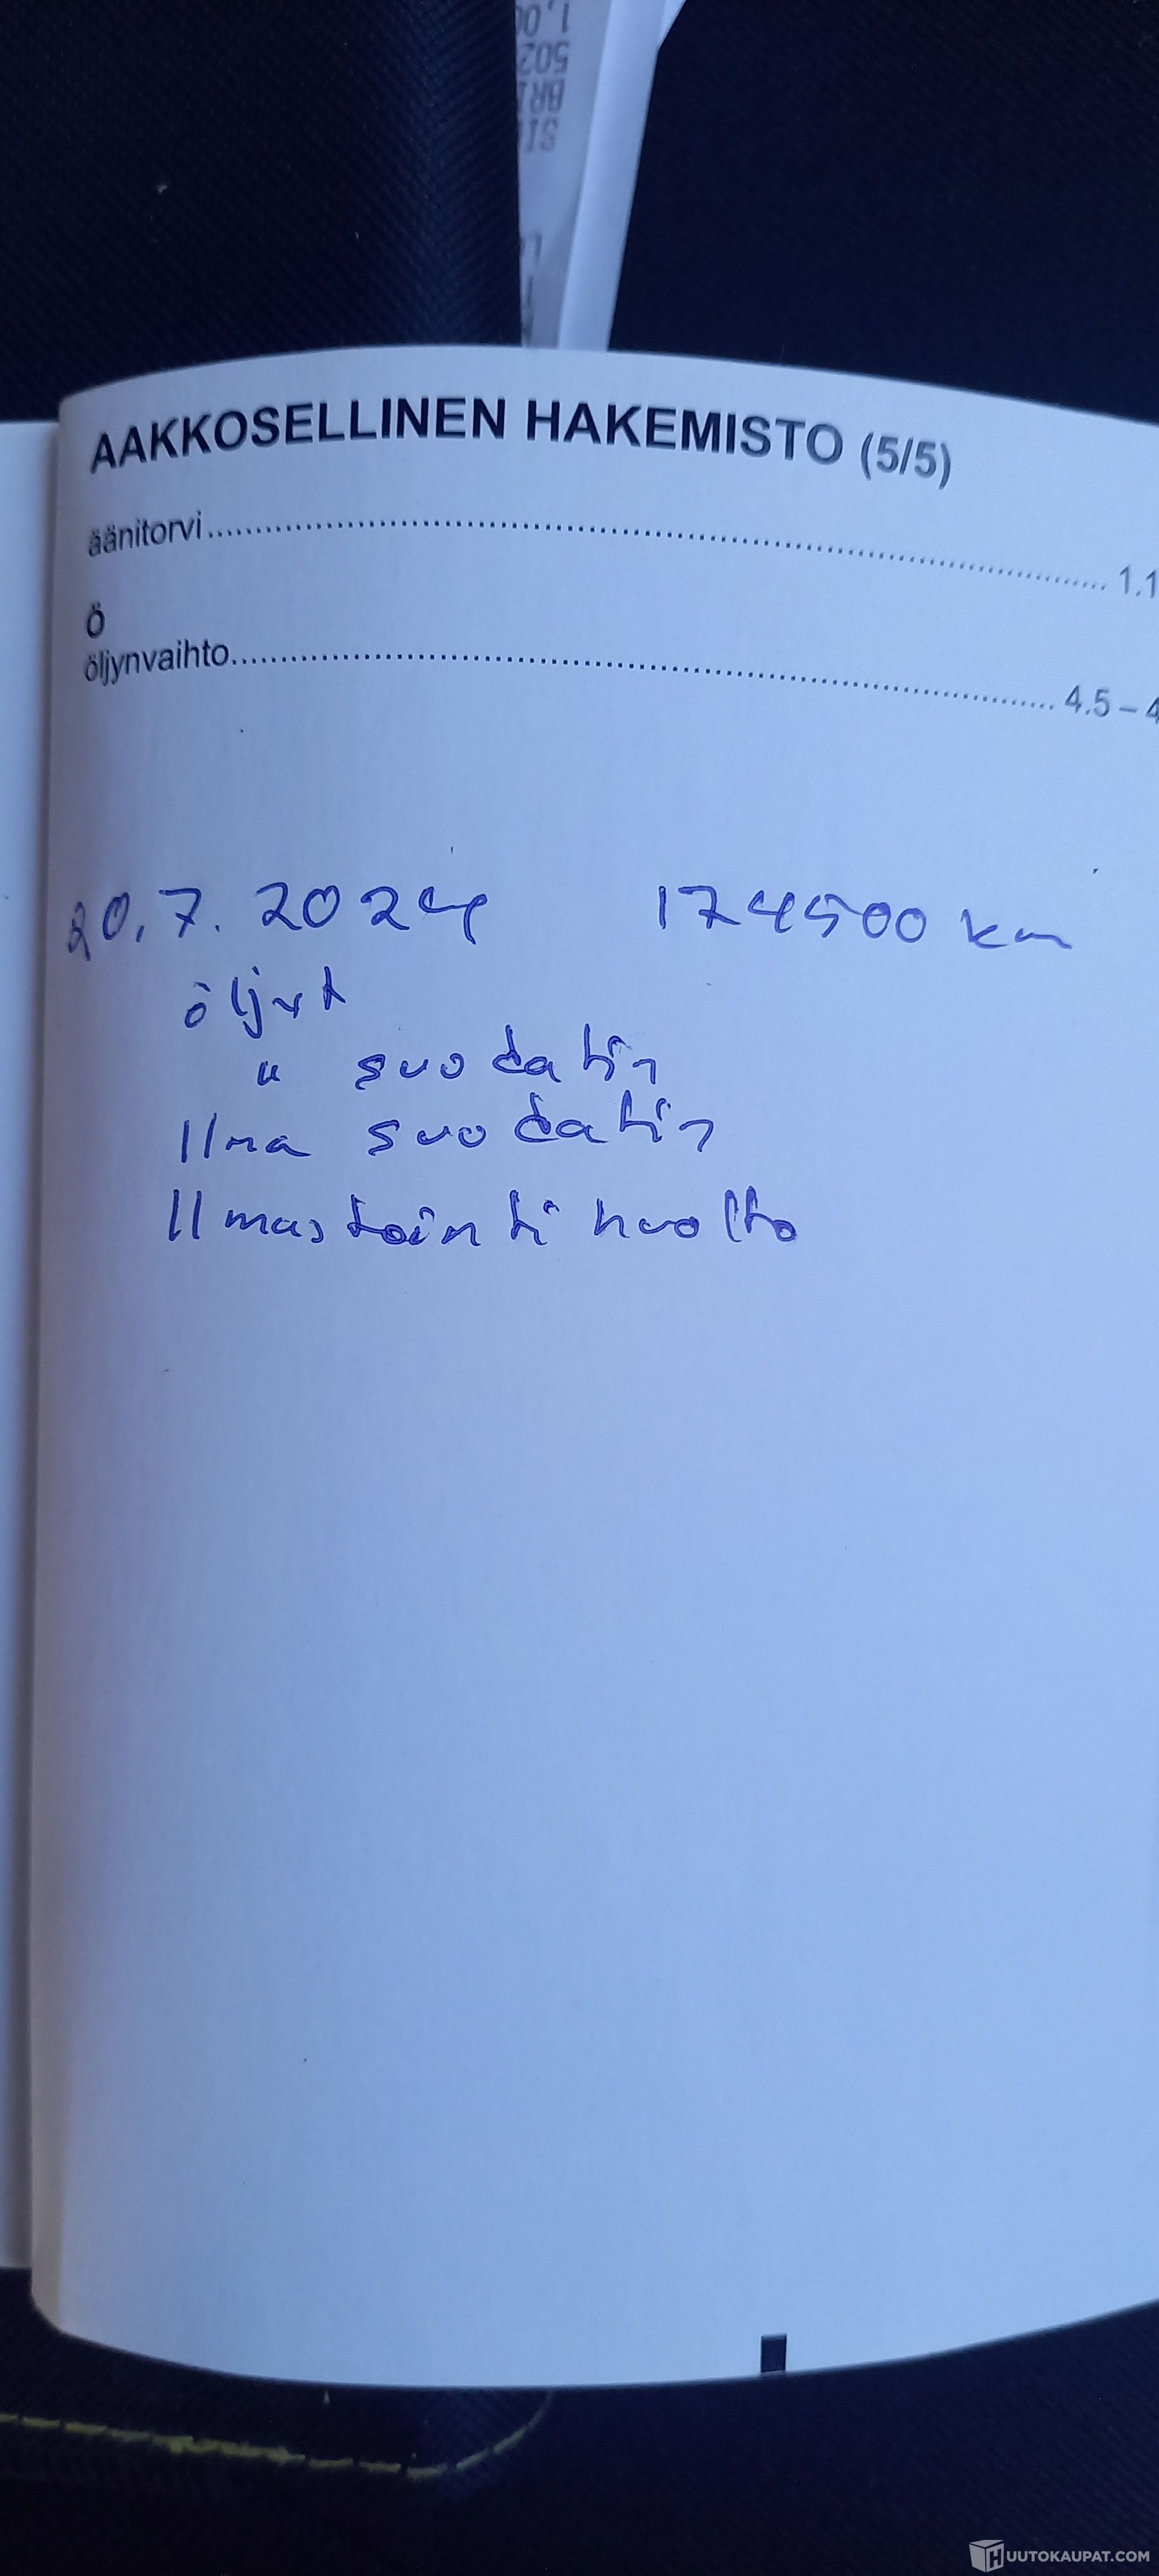 AAKKOSELLINEN HAKEMISTO (5/5)
äänitorvi........................................ 1.1
Ö
öljynvaihto........................................ 4.5 – 4
20.7.2024 174500 km
öljyt
" suodatin
Ilma suodatin
Ilmastointi huolto
HUUTOKAUPAT.COM